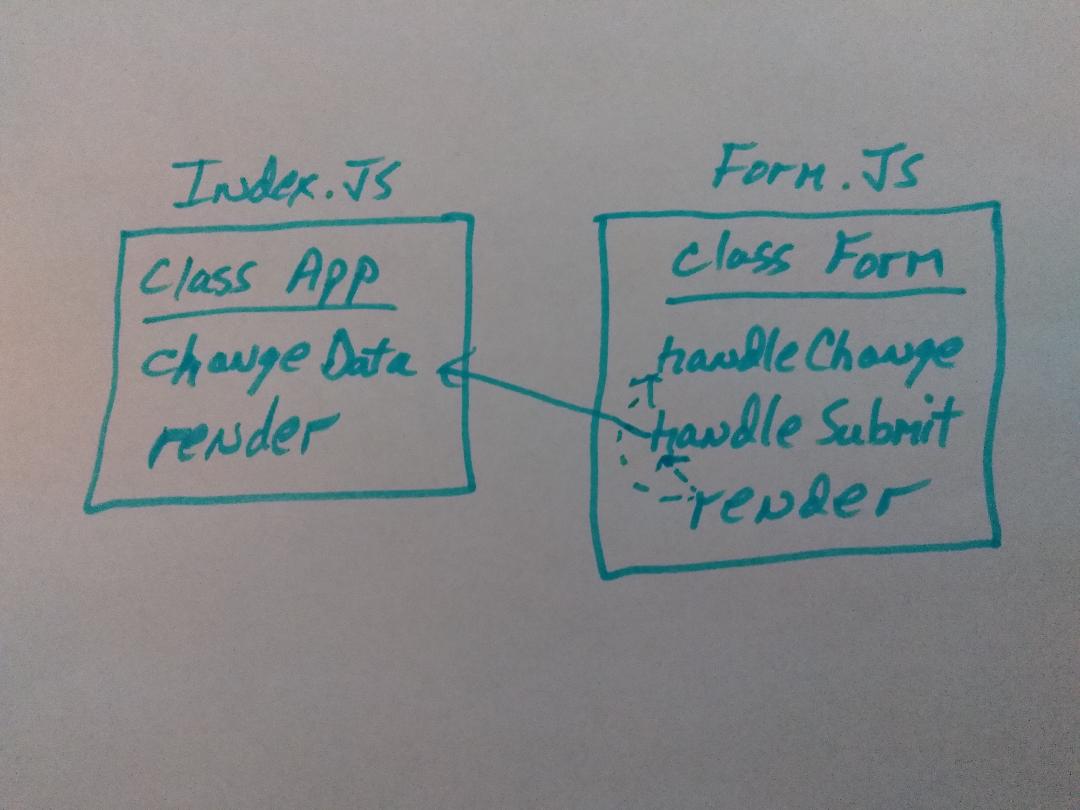 Index.JS
Class App
changeData
render
Form.JS
class Form
handleChange
handleSubmit
render